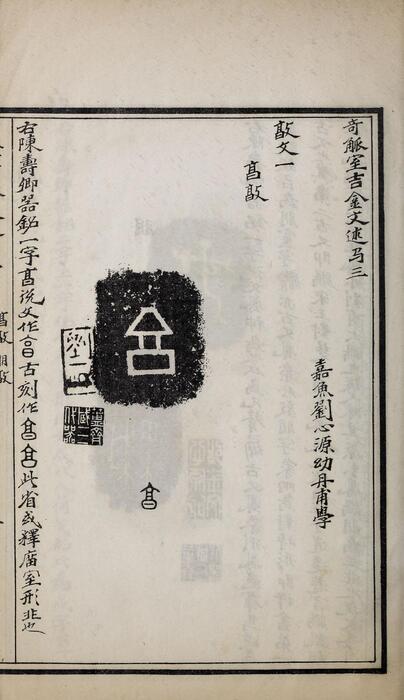 奇觚室吉金文述弓三
嘉魚劉心源幼丹甫學
敦文一
亯敦
亯
簠齋藏三代器
右陳壽卿器銘一字亯說文作亯古刻作亯亯此省或釋廟室形非也
亯敦